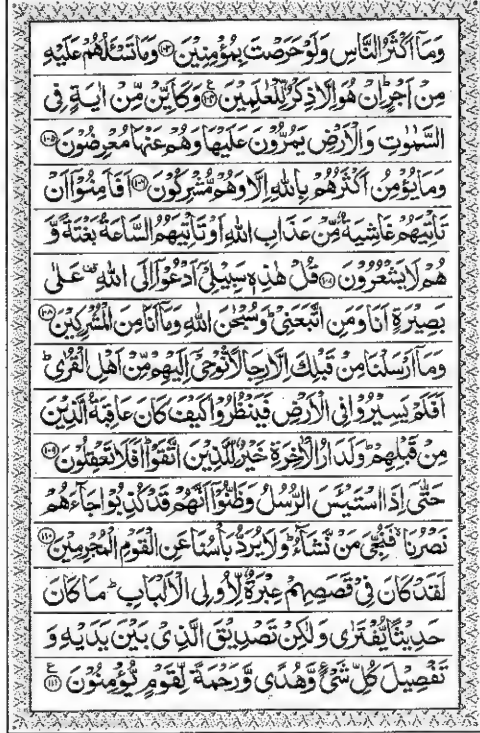 وَمَآ اَكْثَرُ النَّاسِ وَلَوْ حَرَصْتَ بِمُؤْمِنِيْنَ ﴿۱۰۳﴾ وَمَا تَسْـَٔلُهُمْ عَلَيْهِ
مِنْ اَجْرٍ ؕ اِنْ هُوَ اِلَّا ذِكْرٌ لِّلْعٰلَمِيْنَ ﴿۱۰۴﴾ ع وَكَاَيِّنْ مِّنْ اٰيَةٍ فِى
السَّمٰوٰتِ وَالْاَرْضِ يَمُرُّوْنَ عَلَيْهَا وَهُمْ عَنْهَا مُعْرِضُوْنَ ﴿۱۰۵﴾
وَمَا يُؤْمِنُ اَكْثَرُهُمْ بِاللّٰهِ اِلَّا وَهُمْ مُّشْرِكُوْنَ ﴿۱۰۶﴾ اَفَاَمِنُوْۤا اَنْ
تَاْتِيَهُمْ غَاشِيَةٌ مِّنْ عَذَابِ اللّٰهِ اَوْ تَاْتِيَهُمُ السَّاعَةُ بَغْتَةً وَّ
هُمْ لَا يَشْعُرُوْنَ ﴿۱۰۷﴾ قُلْ هٰذِهٖ سَبِيْلِىْۤ اَدْعُوْۤا اِلَى اللّٰهِ ؔ عَلٰى
بَصِيْرَةٍ اَنَا وَمَنِ اتَّبَعَنِىْ ؕ وَسُبْحٰنَ اللّٰهِ وَمَاۤ اَنَا مِنَ الْمُشْرِكِيْنَ ﴿۱۰۸﴾
وَمَاۤ اَرْسَلْنَا مِنْ قَبْلِكَ اِلَّا رِجَالًا نُّوْحِىْۤ اِلَيْهِمْ مِّنْ اَهْلِ الْقُرٰى ؕ
اَفَلَمْ يَسِيْرُوْا فِى الْاَرْضِ فَيَنْظُرُوْا كَيْفَ كَانَ عَاقِبَةُ الَّذِيْنَ
مِنْ قَبْلِهِمْ ؕ وَلَدَارُ الْاٰخِرَةِ خَيْرٌ لِّلَّذِيْنَ اتَّقَوْا ؕ اَفَلَا تَعْقِلُوْنَ ﴿۱۰۹﴾
حَتّٰۤى اِذَا اسْتَيْـَٔسَ الرُّسُلُ وَظَنُّوْۤا اَنَّهُمْ قَدْ كُذِبُوْا جَآءَهُمْ
نَصْرُنَا ۙ فَنُجِّىَ مَنْ نَّشَآءُ ؕ وَلَا يُرَدُّ بَاْسُنَا عَنِ الْقَوْمِ الْمُجْرِمِيْنَ ﴿۱۱۰﴾
لَقَدْ كَانَ فِىْ قَصَصِهِمْ عِبْرَةٌ لِّاُولِى الْاَلْبَابِ ؕ مَا كَانَ
حَدِيْثًا يُّفْتَرٰى وَلٰكِنْ تَصْدِيْقَ الَّذِىْ بَيْنَ يَدَيْهِ وَ
تَفْصِيْلَ كُلِّ شَىْءٍ وَّهُدًى وَّرَحْمَةً لِّقَوْمٍ يُّؤْمِنُوْنَ ﴿۱۱۱﴾ ع